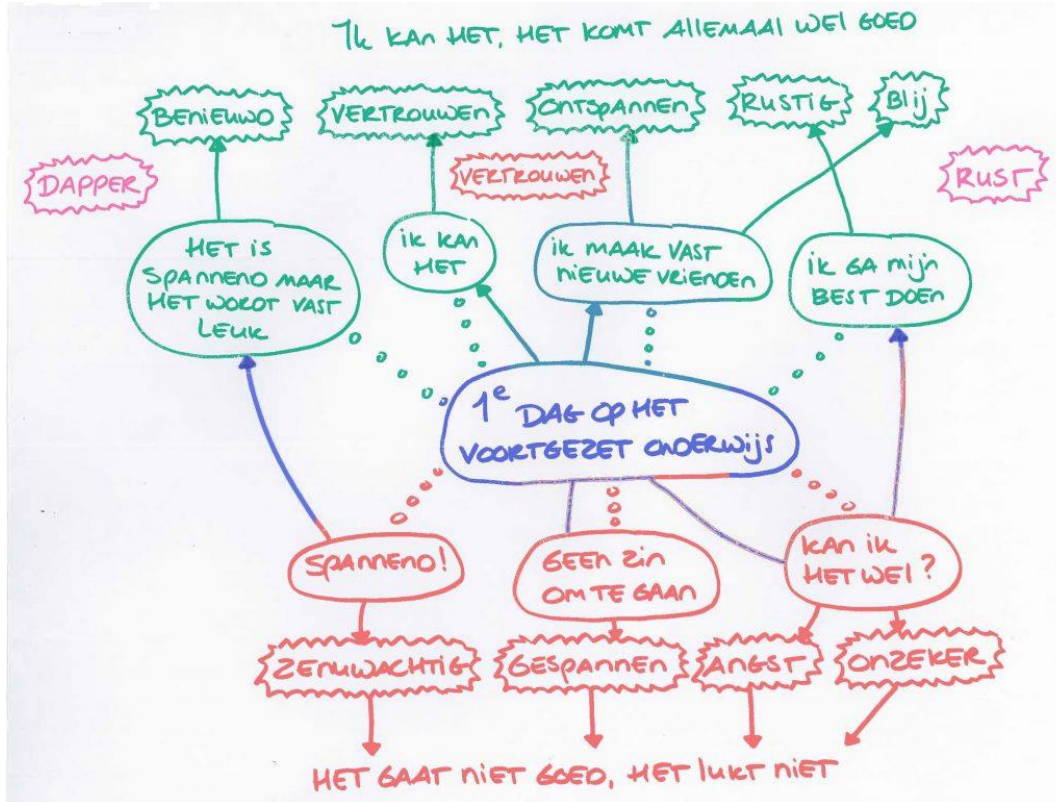 Ik KAN HET, HET KOMT ALLEMAAL WEL GOED
BENIEUWD
VERTROUWEN
ONTSPANNEN
RUSTIG
Blij
DAPPER
VERTROUWEN
RUST
HET IS
SPANNEND MAAR
HET WORDT VAST
LEUK
ik KAN
HET
ik MAAK VAST
NIEUWE VRIENDEN
ik GA mijn
BEST DOEN
1e DAG OP HET
VOORTGEZET ONDERWijS
SPANNEND!
GEEN ZIN
OM TE GAAN
KAN IK
HET WEL?
ZENUWACHTIG
GESPANNEN
ANGST
ONZEKER
HET GAAT NIET GOED, HET lUKT NIET